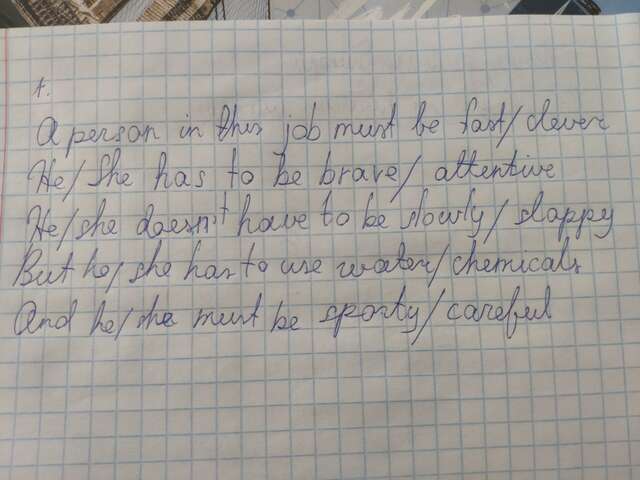 1.
A person in this job must be fast/clever
He/she has to be brave/attentive
He/she doesn't have to be slowly/slappy
But he/she has to use water/chemicals
And he/she must be sporty/careful